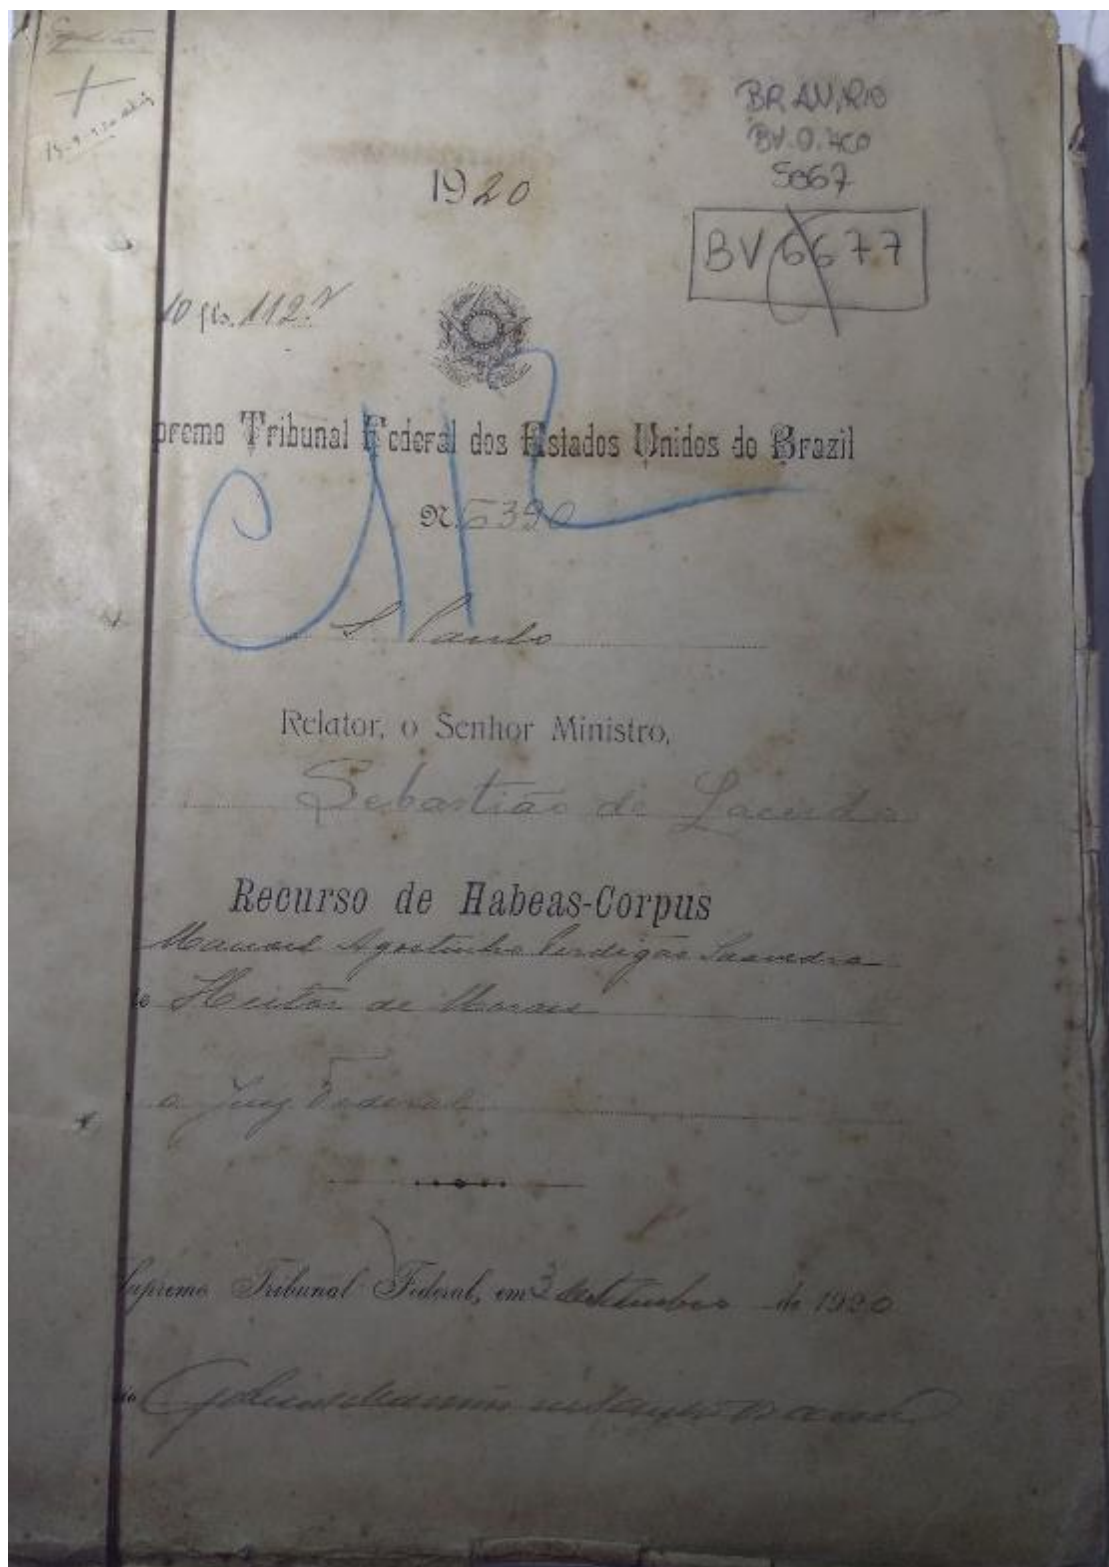 BR AN, RIO
BV.0.HCO
5067
1920
BV 6677
fls. 112
premo Tribunal Federal dos Estados Unidos do Brazil
N. 6390
S. Paulo
Relator, o Senhor Ministro,
Sebastião de Lacerda
Recurso de Habeas-Corpus
Manoel Agostinho Perdigão Saavedra
Heitor de Moraes
o Juiz Federal
Supremo Tribunal Federal, em 3 setembro de 1920